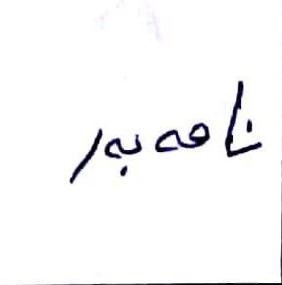 نامەبەر